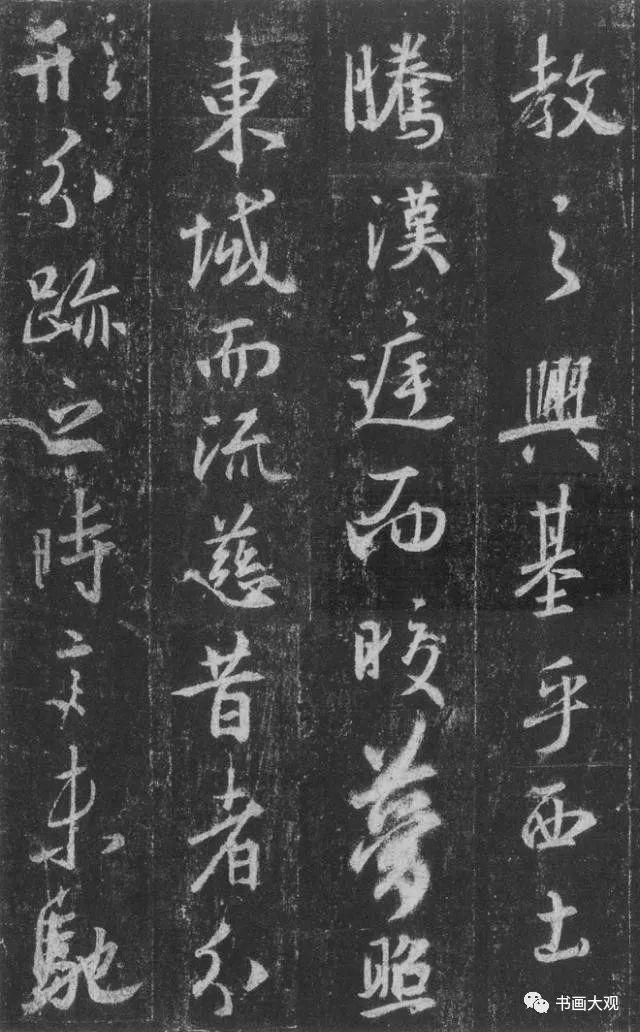 教之興基乎西土
騰漢庭而皎夢照
東域而流慈昔者分
形分跡之時言未馳
书画大观